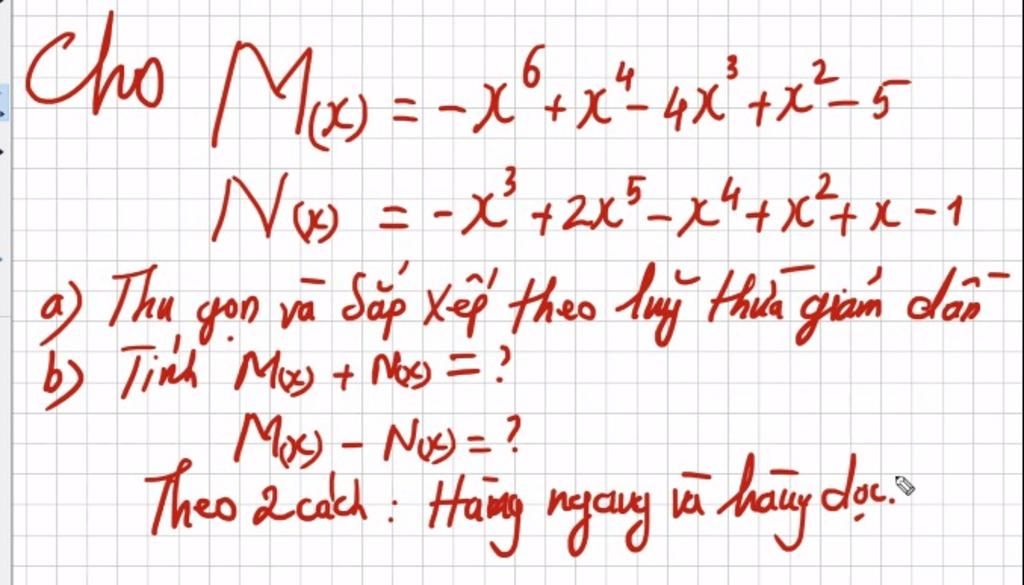 Cho M(x) = -x⁶ + x⁴ - 4x³ + x² - 5
N(x) = -x³ + 2x⁵ - x⁴ + x² + x - 1
a) Thu gọn và sắp xếp theo luỹ thừa giảm dần
b) Tính M(x) + N(x) = ?
M(x) - N(x) = ?
Theo 2 cách : Hàng ngang và hàng dọc.